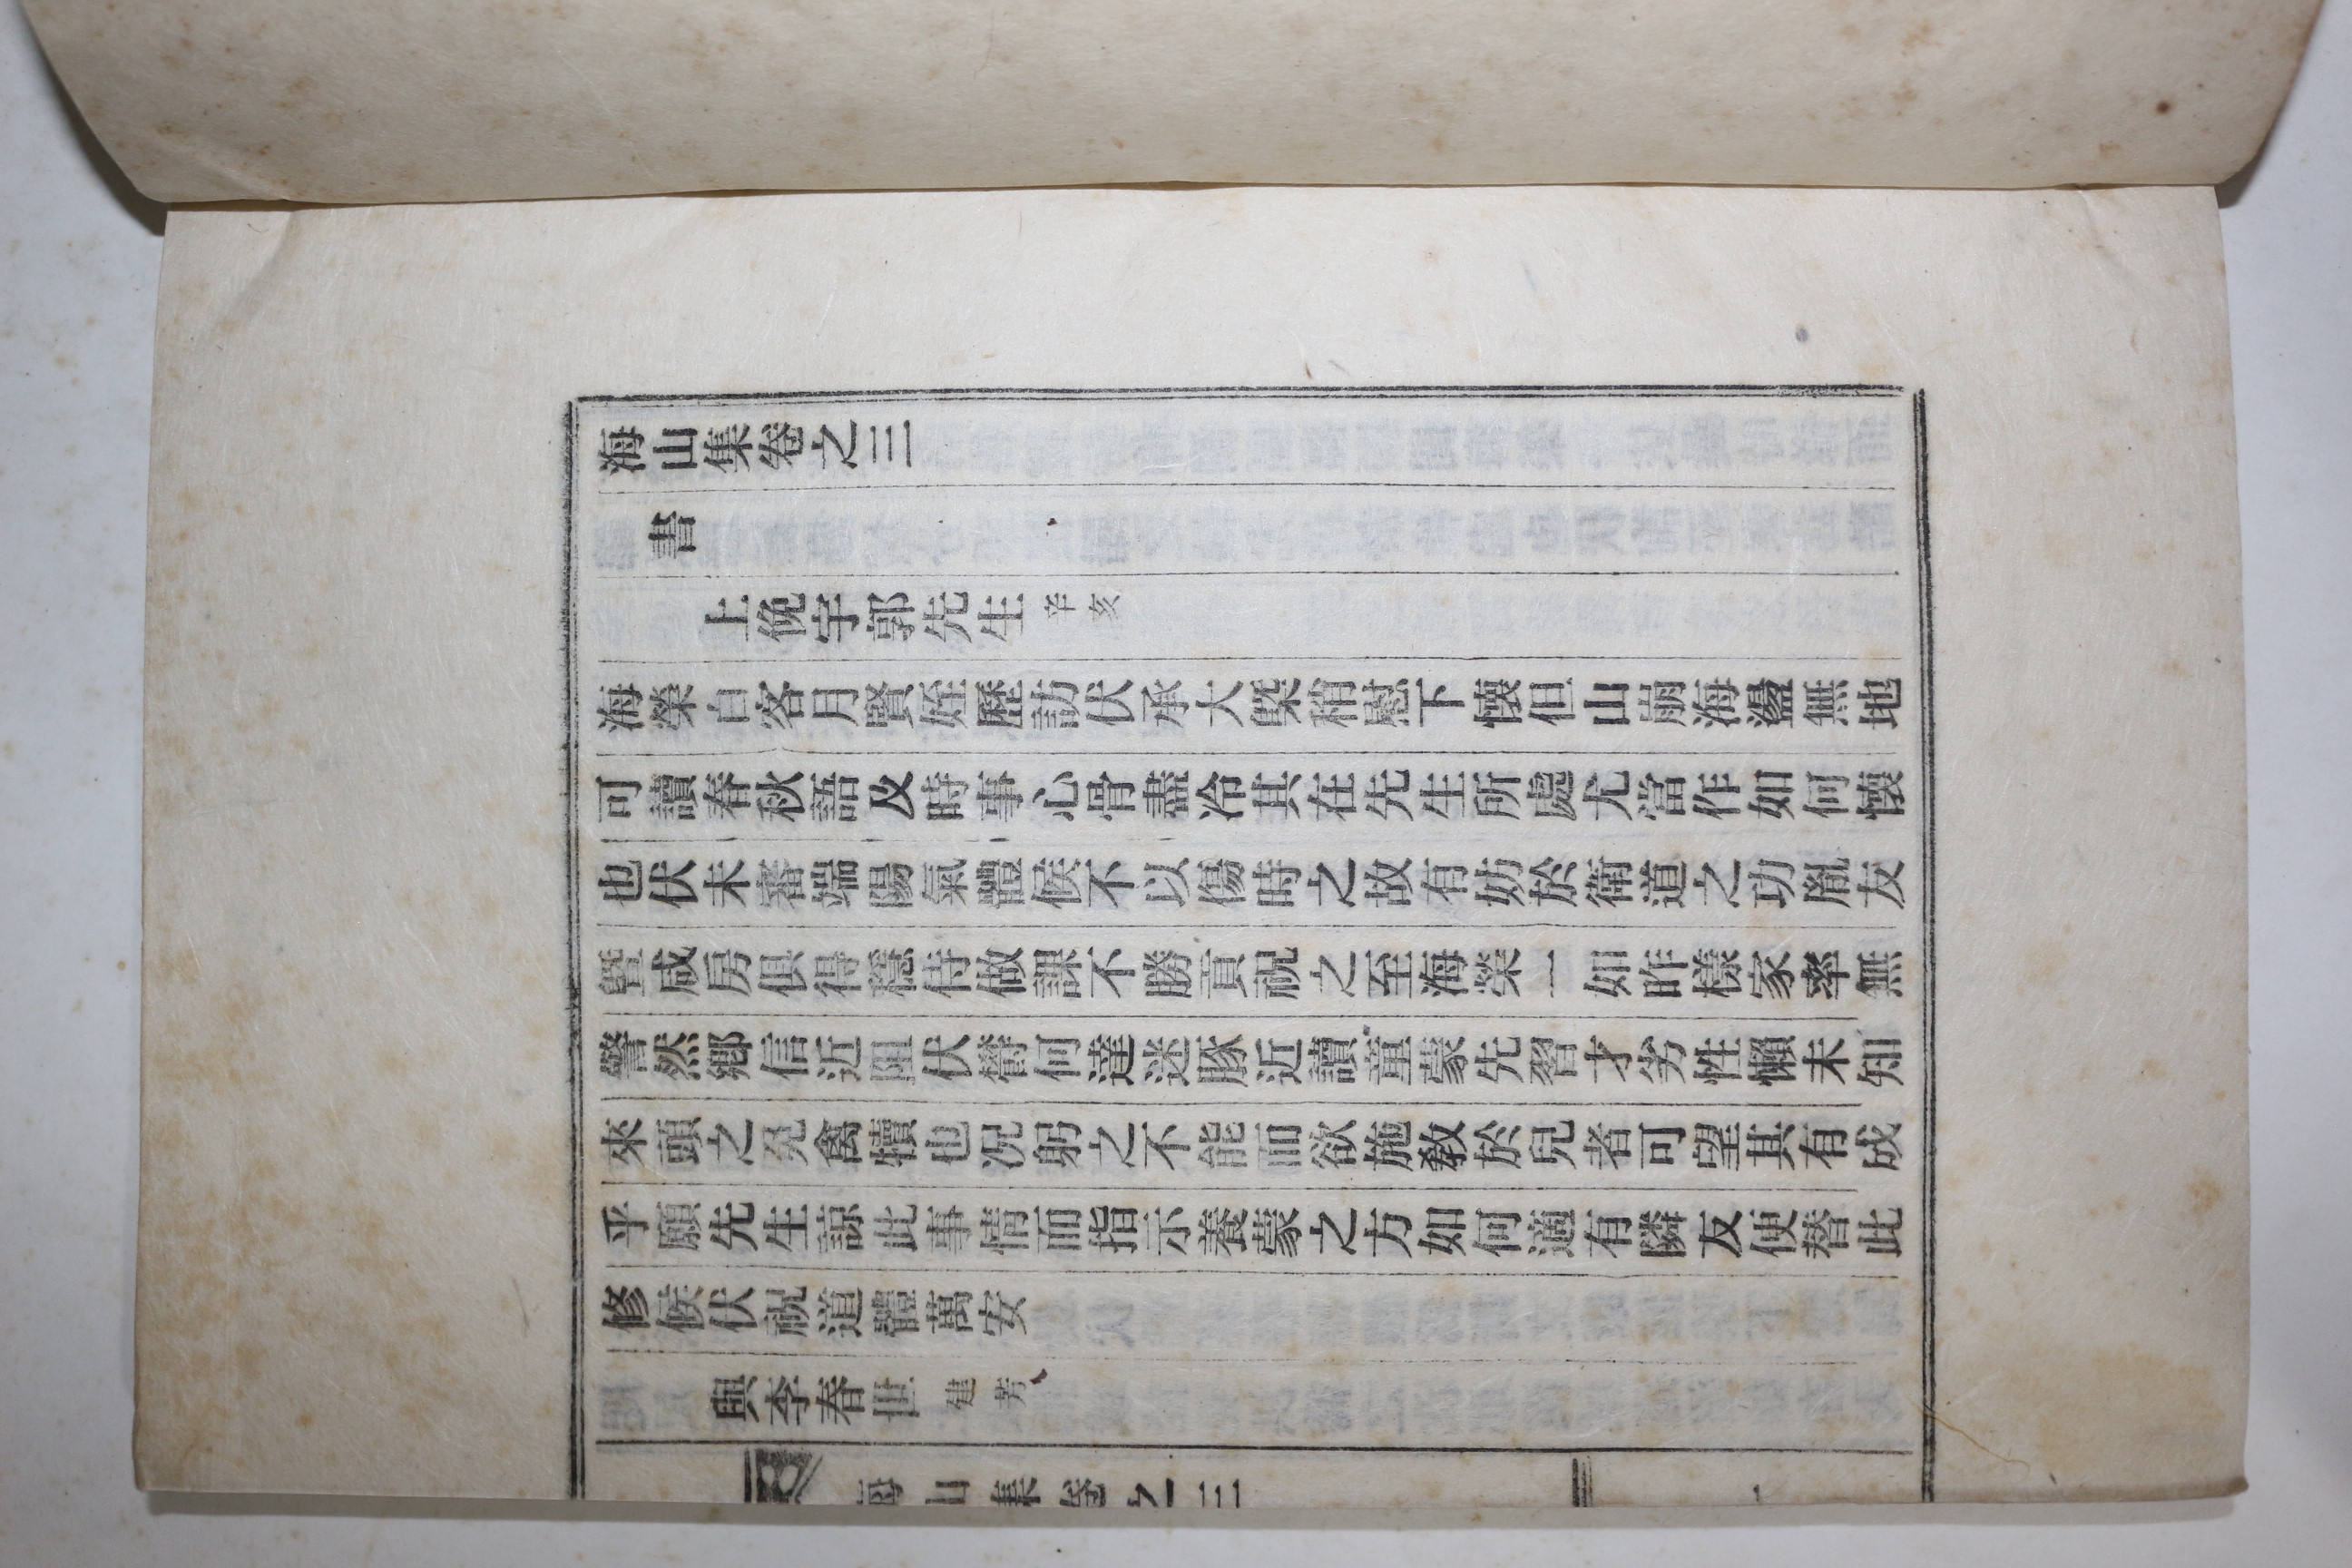 海山集卷之三
書
上俛宇郭先生 辛亥
海榮白客月賢姪歷訪伏承大槩稍慰下懷但山崩海盪無地
可讀春秋語及時事心骨盡冷其在先生所處尤當作如何懷
也伏未審端陽氣體候不以傷時之故有妨於衛道之功胤友
曁咸房俱得穩侍做課不勝貢祝之至海榮一如昨樣家率無
警然鄕信近阻伏欝何達迷豚近讀童蒙先習才劣性懶未知
來頭之免禽犢也况躬之不能而欲施敎於兒者可望其有成
乎願先生諒此事情而指示養蒙之方如何適有隣友便替此
修候伏祝道體萬安
與李春世 建芳
海山集卷之三 一